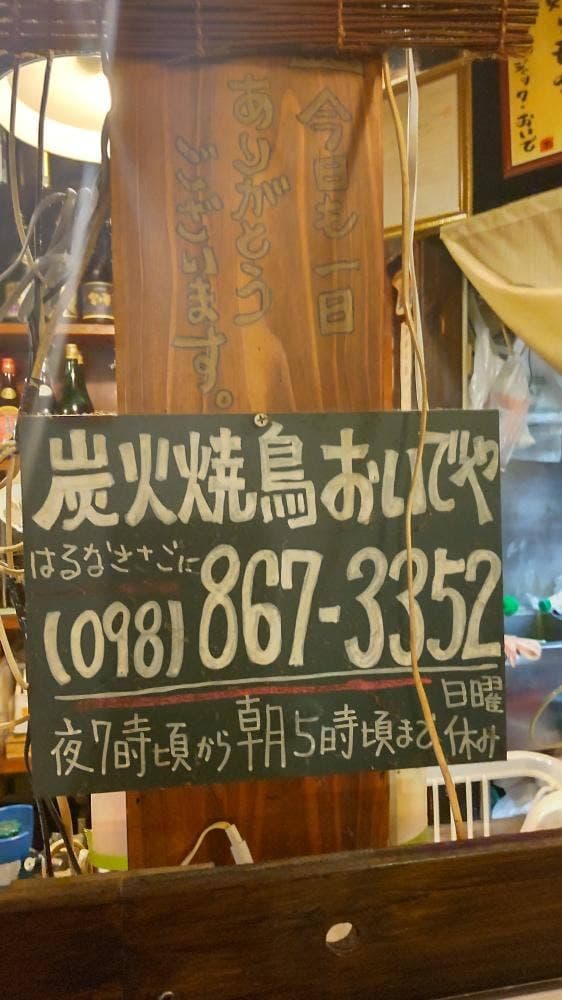 今日も一日
ありがとう
ございます。
炭火焼鳥おいでや
はるなささごに
(098) 867-3352
夜7時頃から朝5時頃まで
日曜
休み